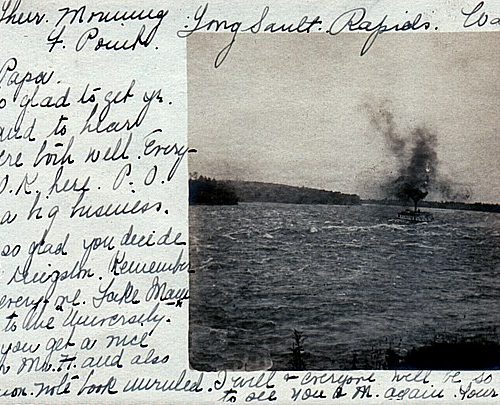 Thur. Morning Long Sault Rapids.
F. Point.
Papa.
so glad to get yr.
and to hear
were both well. Every-
O.K. here. P. O.
a big business.
so glad you decide
Kingston. Remember
every one. Take Mam
to the University.
you get a nice
Mr. H. and also
note book unruled. I will & everyone will be so
to see you & M. again. Your